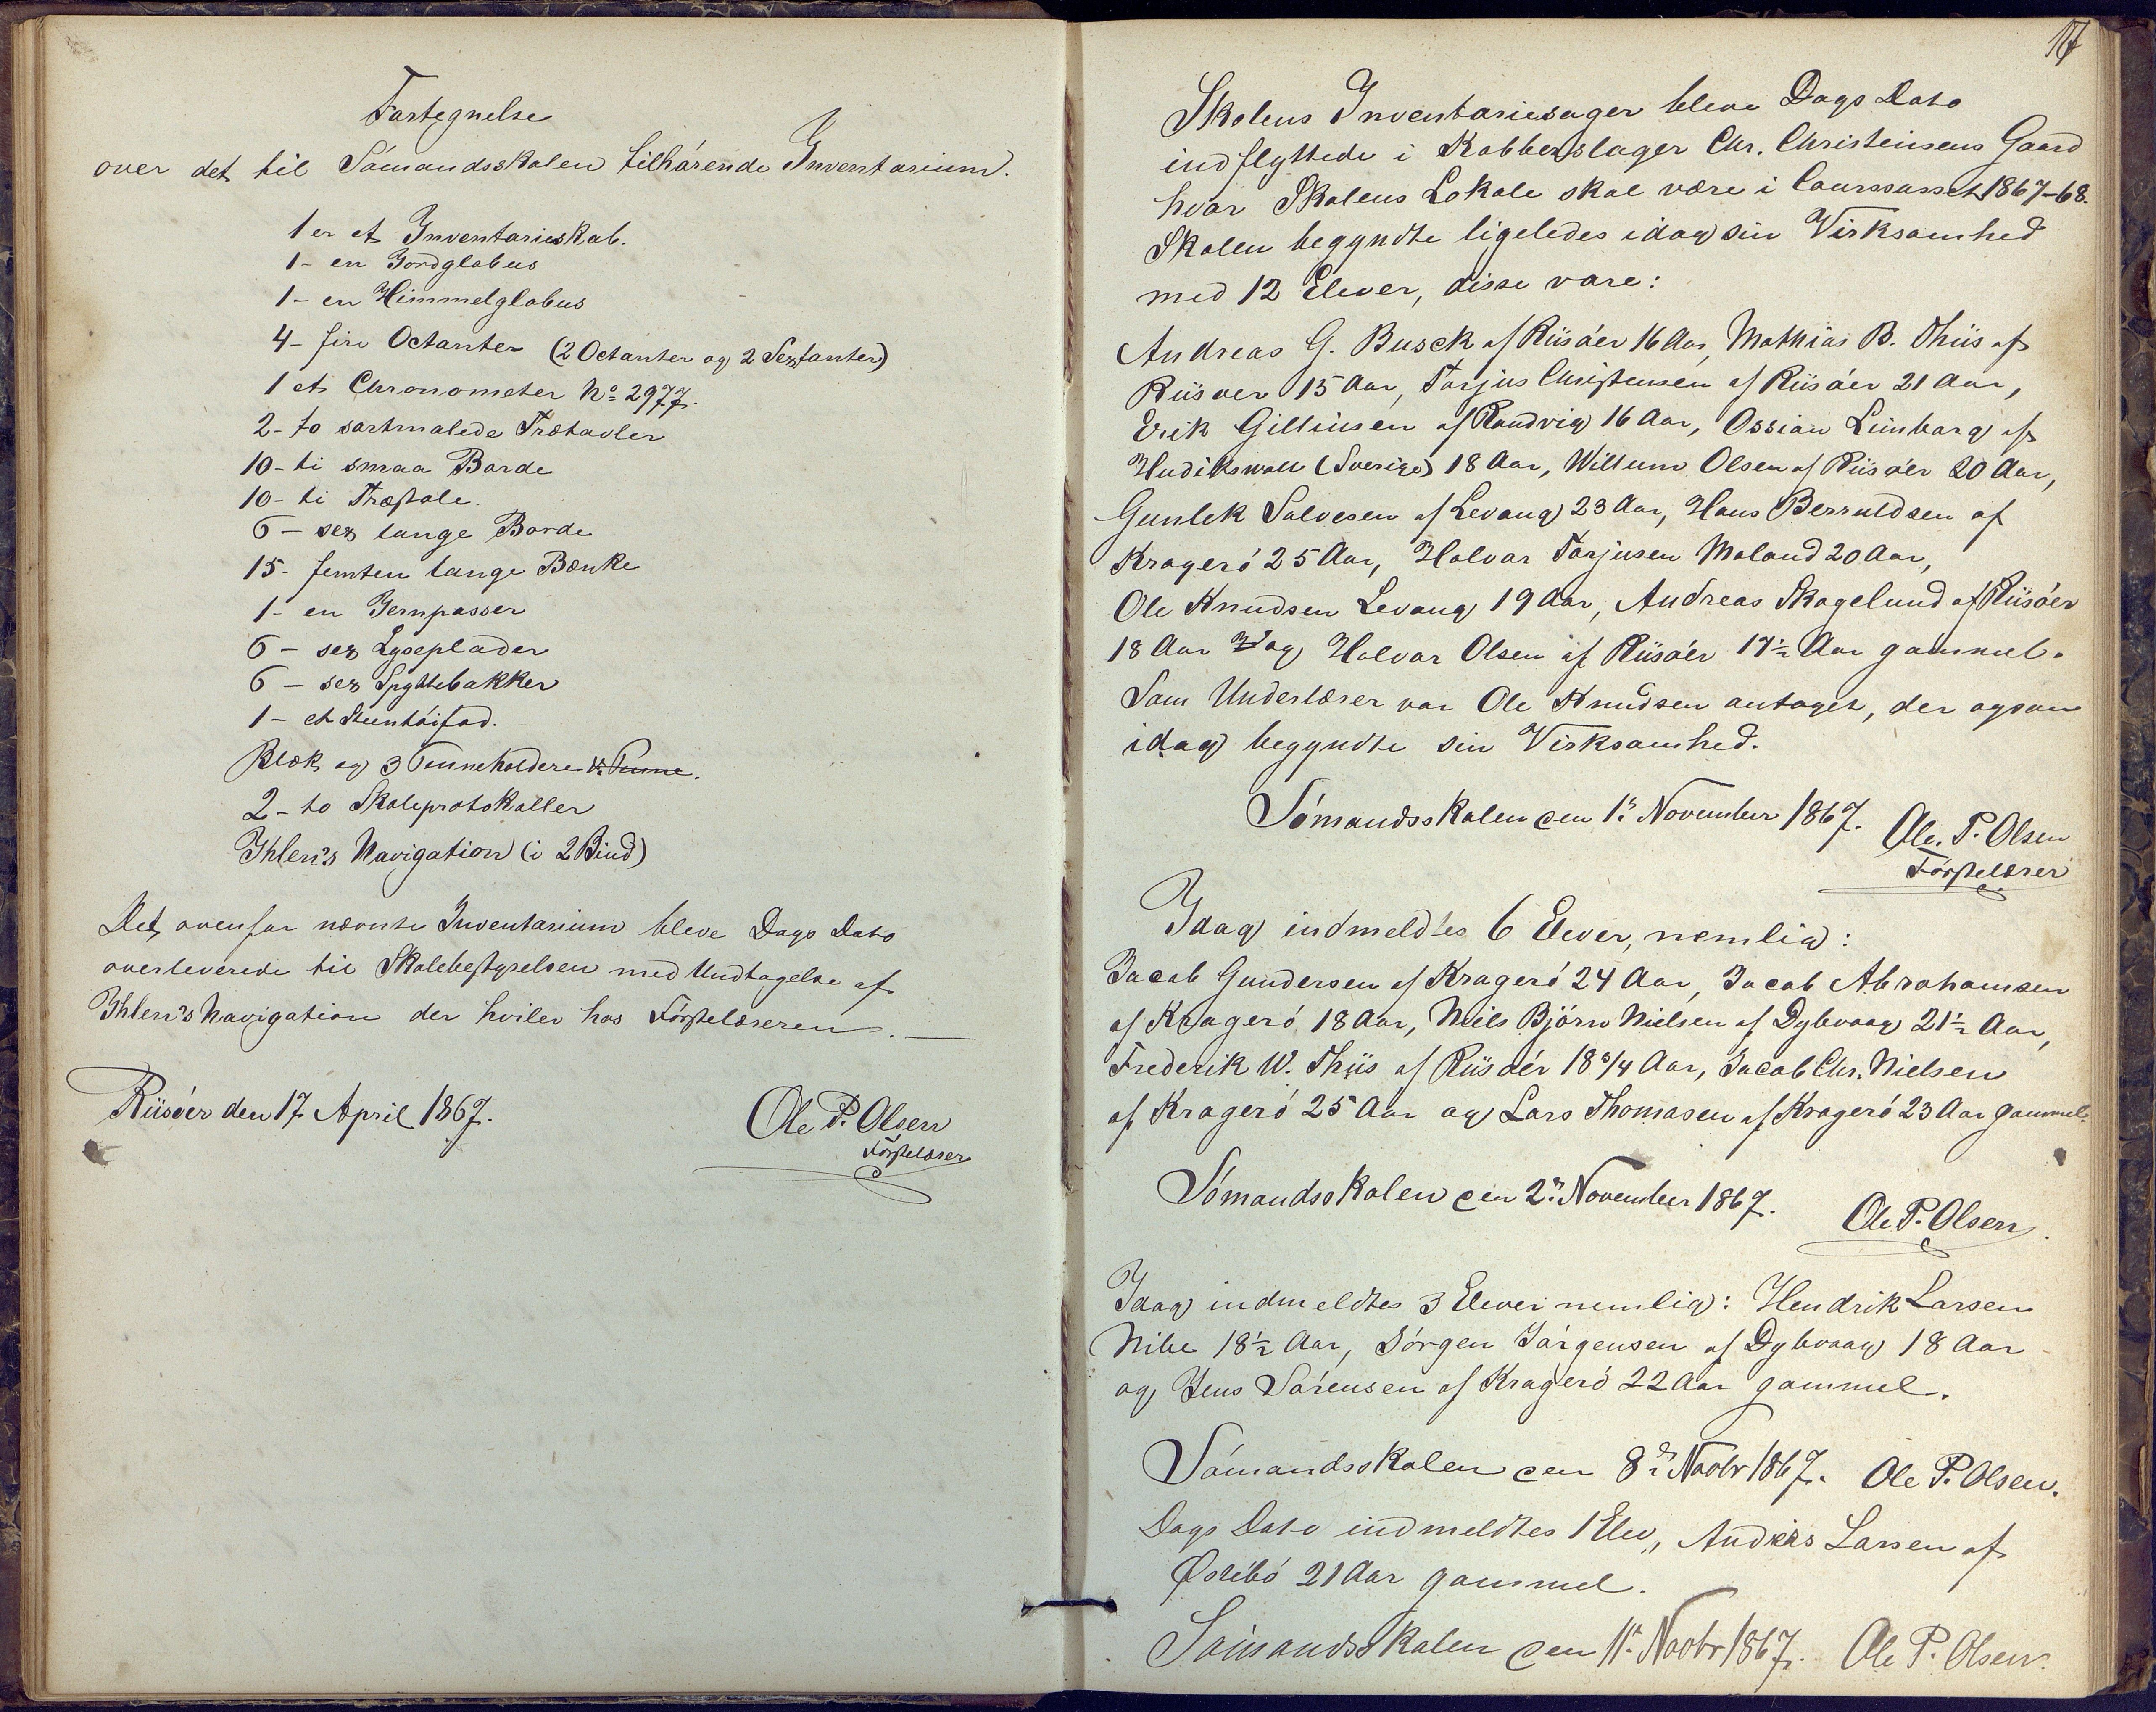 Fortegnelse
over det til Sømandsskolen tilhørende Inventarium.
1 er et Inventarieskab.
1 - en Jordglobus
1 - en Himmelglobus
4 - fire Octanter (2 Octanter og 2 Sextanter)
1 et Chronometer No 2977.
2 - to sortmalede Trætavler
10 - ti smaa Borde
10 - ti Træstole.
6 - sex lange Borde
15 - femten lange Bænke
1 - en Jernpasser
6 - sex Lyseplader
6 - sex Spyttebakker
1 - et Steentøifad.
Blæk og 3 Penneholdere
2 - to Skoleprotokoller
Ihlen's Navigation (i 2 Bind)
Det ovenfor nævnte Inventarium bleve Dags Dato
overleverede til Skolebestyrelsen med Undtagelse af
Ihlen's Navigation der hviler hos Førstelæreren. —
Riisøer den 17 April 1867.
Ole P. Olsen
Førstelærer
17
Skolens Inventariesager bleve Dags Dato
indflyttede i Kobberslager Chr. Christensens Gaard
hvor Skolens Lokale skal være i 1867-68.
Skolen begyndte ligeledes idag sin Virksomhed
med 12 Elever, disse vare:
Andreas G. Busck af Riisøer 16 Aar, Mathias B. Thiis af
Riisøer 15 Aar, Torjus Christensen af Riisøer 21 Aar,
Erik af Sandvig 16 Aar, Ossian Limbarg af
Hudikswall (Sverige) 18 Aar, Willum Olsen af Riisøer 20 Aar,
Gunlek Salvesen af Levang 23 Aar, Hans Berruldsen af
Kragerø 25 Aar, Halvor Torjusen Moland 20 Aar,
Ole Knudsen Levang 19 Aar, Andreas Skogelund af Riisøer
18 Aar og Halvor Olsen af Riisøer 17½ Aar gammel.
Som Underlærer var Ole Knudsen antaget, der ogsaa
idag begyndte sin Virksomhed.
Sømandsskolen den 1r November 1867.
Ole. P. Olsen
Førstelærer
Idag indmeldtes 6 Elever, nemlig:
Jacob Gundersen af Kragerø 24 Aar, Jacob Abrahamsen
af Kragerø 18 Aar, Niels Bjørn Nielsen af Dybvaag 21½ Aar,
Frederik W. Thiis af Riisøer 18 3/4 Aar, Jacob Chr. Nielsen
af Kragerø 25 Aar og Lars Thomasen af Kragerø 23 Aar gammel.
Sømandsskolen den 2n November 1867.
Ole P. Olsen.
Idag indmeldtes 3 Elever nemlig: Hendrik Larsen
Nibe 18½ Aar, Jørgen Jørgensen af Dybvaag 18 Aar
og Jens Sørensen af Kragerø 22 Aar gammel.
Sømandsskolen den 8de Novbr 1867. Ole P. Olsen.
Dags Dato indmeldtes 1 Elev, Anders Larsen af
Østebø 21 Aar gammel.
Sømandsskolen den 11r Novbr 1867. Ole P. Olsen.